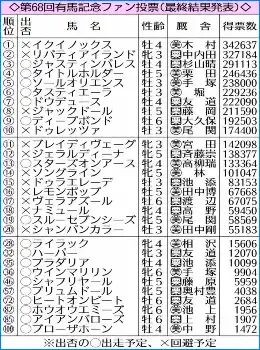 ◇第68回有馬記念ファン投票(最終結果発表)◇
順位 出否 馬名 性齢 厩舎 得票数
① ×イクイノックス 牡4 美木村 342637
② ×リバティアイランド 牝3 栗中内田 327184
③ ○ジャスティンパレス 牡4 栗杉山晴 291113
④ ○タイトルホルダー 牡5 美栗田 246436
⑤ ○ソールオリエンス 牡3 美手塚 238000
⑥ ○タスティエーラ 牡3 美堀 229236
⑦ ○ドウデュース 牡4 栗友道 222090
⑧ ×ジャックドール 牡5 栗藤岡 211590
⑨ ○ディープボンド 牡6 栗大久保 192503
⑩ ×ドゥレッツァ 牡3 美尾関 174400
⑪ ×ブレイディヴェーグ 牝3 美宮田 142098
⑫ ×ジェラルディーナ 牝5 栗斉藤崇 138377
⑬ ○スターズオンアース 牝4 美高柳瑞 133364
⑭ ×ソングライン 牝5 美林 101047
⑮ ×ドゥラエレーデ 牡3 栗池添 83153
⑯ ×レモンポップ 牡5 美田中博 67668
⑰ ×ヴェラアズール 牡6 栗渡辺 67075
⑱ ×ナミュール 牝4 栗高野 59450
⑲ ○スルーセブンシーズ 牝5 美尾関 58569
⑳ ×シャンパンカラー 牡3 美田中剛 55183
○ライラック 牝4 美相沢 15606
○ハーパー 牝3 栗友道 12070
○プラダリア 牡4 栗池添 10099
○ウインマリリン 牝6 美手塚 9904
○シャフリヤール 牡5 栗藤原 5959
○アリムタ
○ヒートオンビート 牡6 栗友道 2684
○ホウオウエミーズ 牝6 美池上 1956
○アイアンバローズ 牡6 栗上村 1907
⑩⓪ ○プローザホーン 牡4 栗中野 1472
※出否の○出走予定、×回避予定